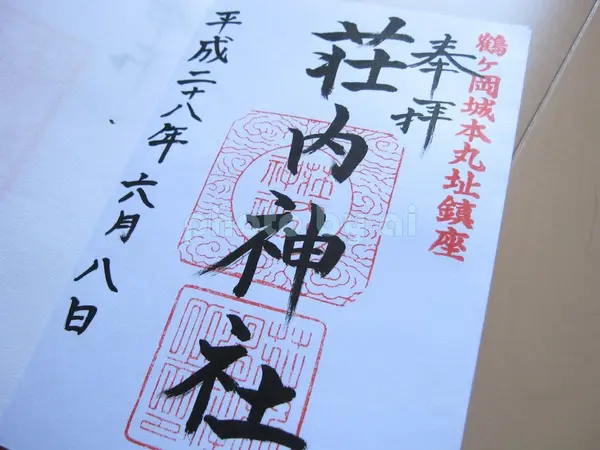 鶴ヶ岡城本丸址鎮座
奉拝
荘内神社
平成二十八年 六月 八日